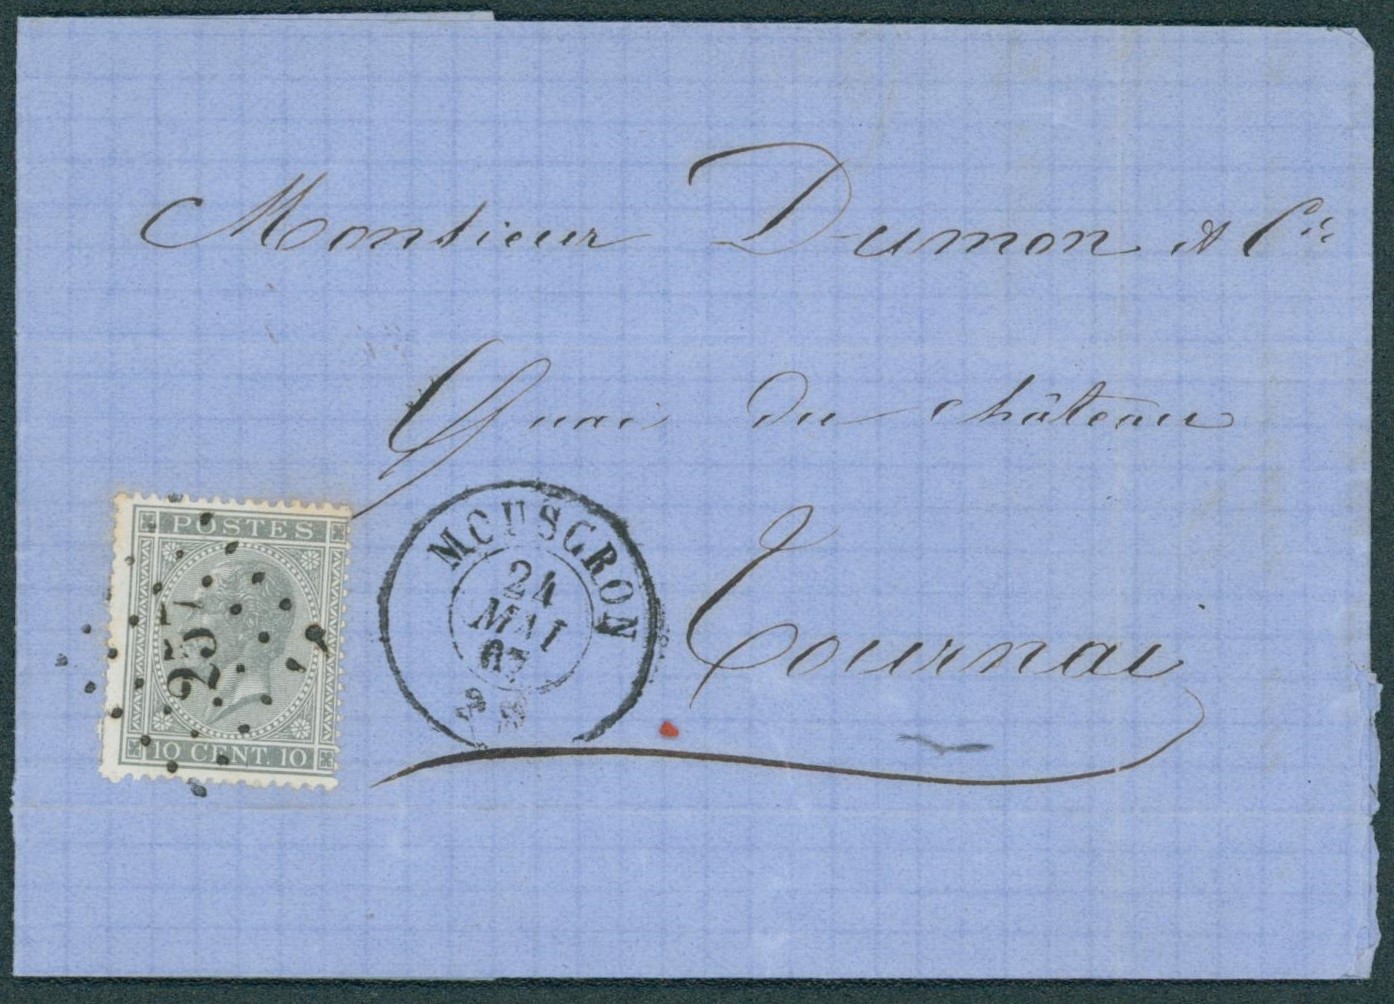 Monsieur Dumon et Cie
Quai du château
Tournai
POSTES
257
10 CENT. 10
MOUSCRON
24
MAI
67